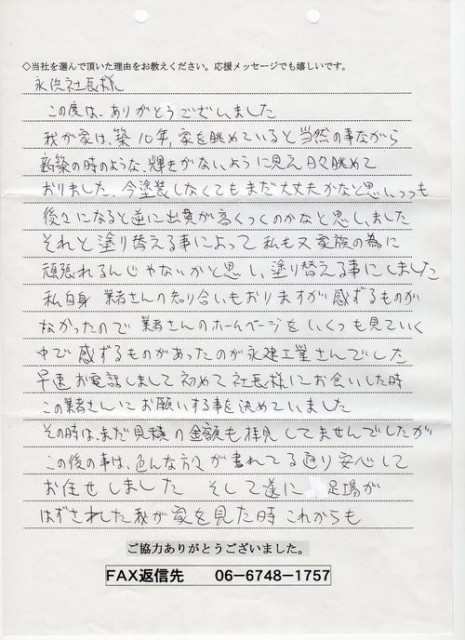 ◇当社を選んで頂いた理由をお教えください。応援メッセージでも嬉しいです。
永浜社長様
この度は、ありがとうございました
我が家は、築10年、家を眺めていると当然の事ながら
新築の時のような、輝きがないように見え日々眺めて
おりました、今塗装しなくてもまだ大丈夫かなと思いつつも
後々になると逆に出費が高くつくのかなと思いました
それと塗り替える事によって私も又家族の為に
頑張れるんじゃないかと思い、塗り替える事にしました
私自身 業者さんの知り合いもおりますが感ずるものが
なかったので業者さんのホームページをいくつも見ていく
中で感ずるものがあったのが永建工業さんでした
早速お電話しまして初めて社長様にお会いした時
この業者さんにお願いする事を決めていました
その時は、まだ見積の金額も拝見してませんでしたが
この後の事は、色んな方々が書れてる通り安心して
お任せしました そして遂に 足場が
はずされた我が家を見た時これからも
ご協力ありがとうございました。
FAX返信先 06-6748-1757